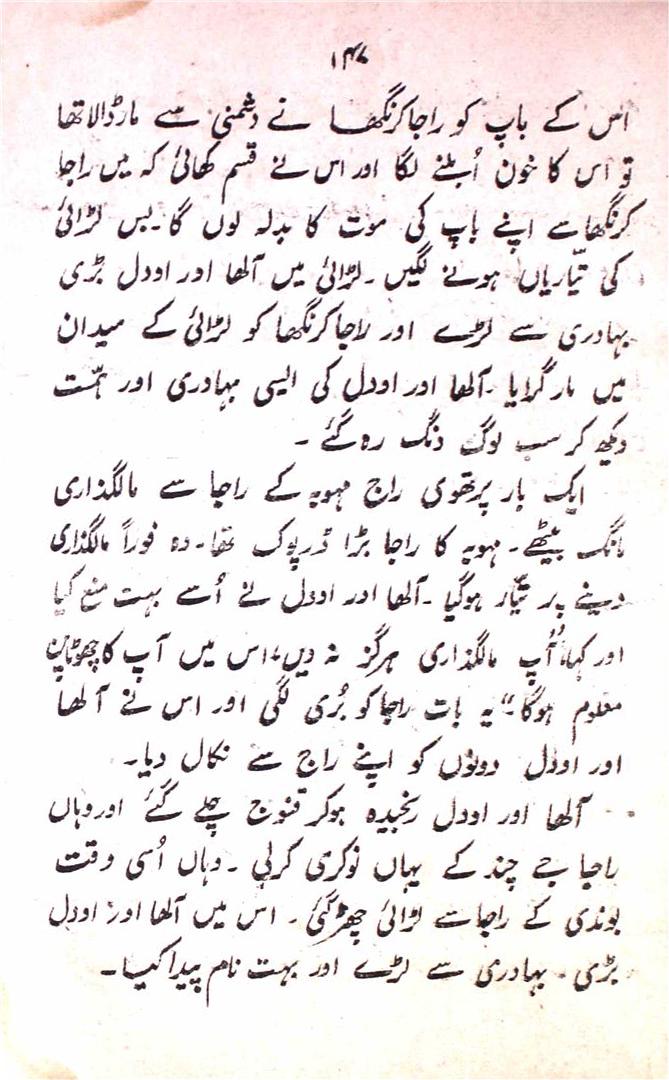 ۱۴۷
اس کے باپ کو راجا کرنگھا نے دشمنی سے مار ڈالا تھا
تو اس کا خون اُبلنے لگا اور اس نے قسم کھائی کہ میں راجا
کرنگھا سے اپنے باپ کی موت کا بدلہ لوں گا۔ بس لڑائی
کی تیّاریاں ہونے لگیں۔ لڑائی میں آلھا اور اودل بڑی
بہادری سے لڑے اور راجا کرنگھا کو لڑائی کے میدان
میں مار گرایا۔ آلھا اور اودل کی ایسی بہادری اور ہمّت
دیکھ کر سب لوگ دنگ رہ گئے۔
ایک بار پرتھوی راج مہوبہ کے راجا سے مالگذاری
مانگ بیٹھے۔ مہوبہ کا راجا بڑا ڈرپوک تھا۔ وہ فوراً مالگذاری
دینے پر تیّار ہوگیا۔ آلھا اور اودل نے اُسے بہت منع کیا
اور کہا، "آپ مالگذاری ہرگز نہ دیں، اس میں آپ کا چھوٹاپن
معلوم ہوگا۔" یہ بات راجا کو بُری لگی اور اس نے آلھا
اور اودل دونوں کو اپنے راج سے نکال دیا۔
آلھا اور اودل رنجیدہ ہوکر قنوج چلے گئے اور وہاں
راجا جے چند کے یہاں نوکری کرلی۔ وہاں اُسی وقت
بوندی کے راجا سے لڑائی چھڑ گئی۔ اس میں آلھا اور اودل
بڑی بہادری سے لڑے اور بہت نام پیدا کیا۔